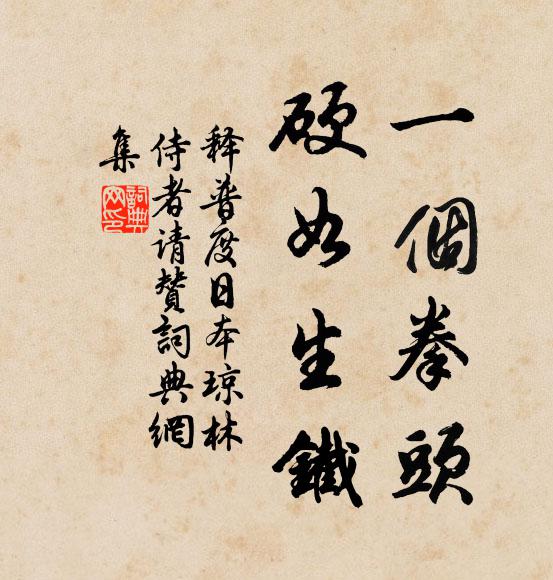 一個拳頭
硬如生鐵
释普度日本琼林
侍者请赞詞典網
集
詞典
网印